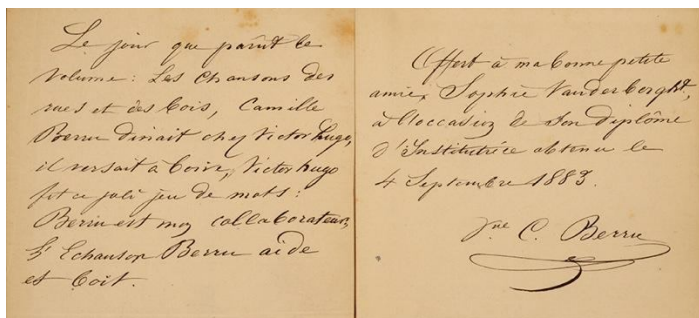 Le jour que parût le
volume : Les Chansons des
rues et des bois, Camille
Berru dinait chez Victor Hugo,
il versait à boire, Victor Hugo
fit ce joli jeu de mots :
Berru est mon collaborateur,
L'Echanson Berru aide
et boit.
Offert à ma bonne petite
amie, Sophie Vanderborght,
à l'occasion de son diplôme
d'Institutrice obtenu le
4 Septembre 1883.
Vve C. Berru